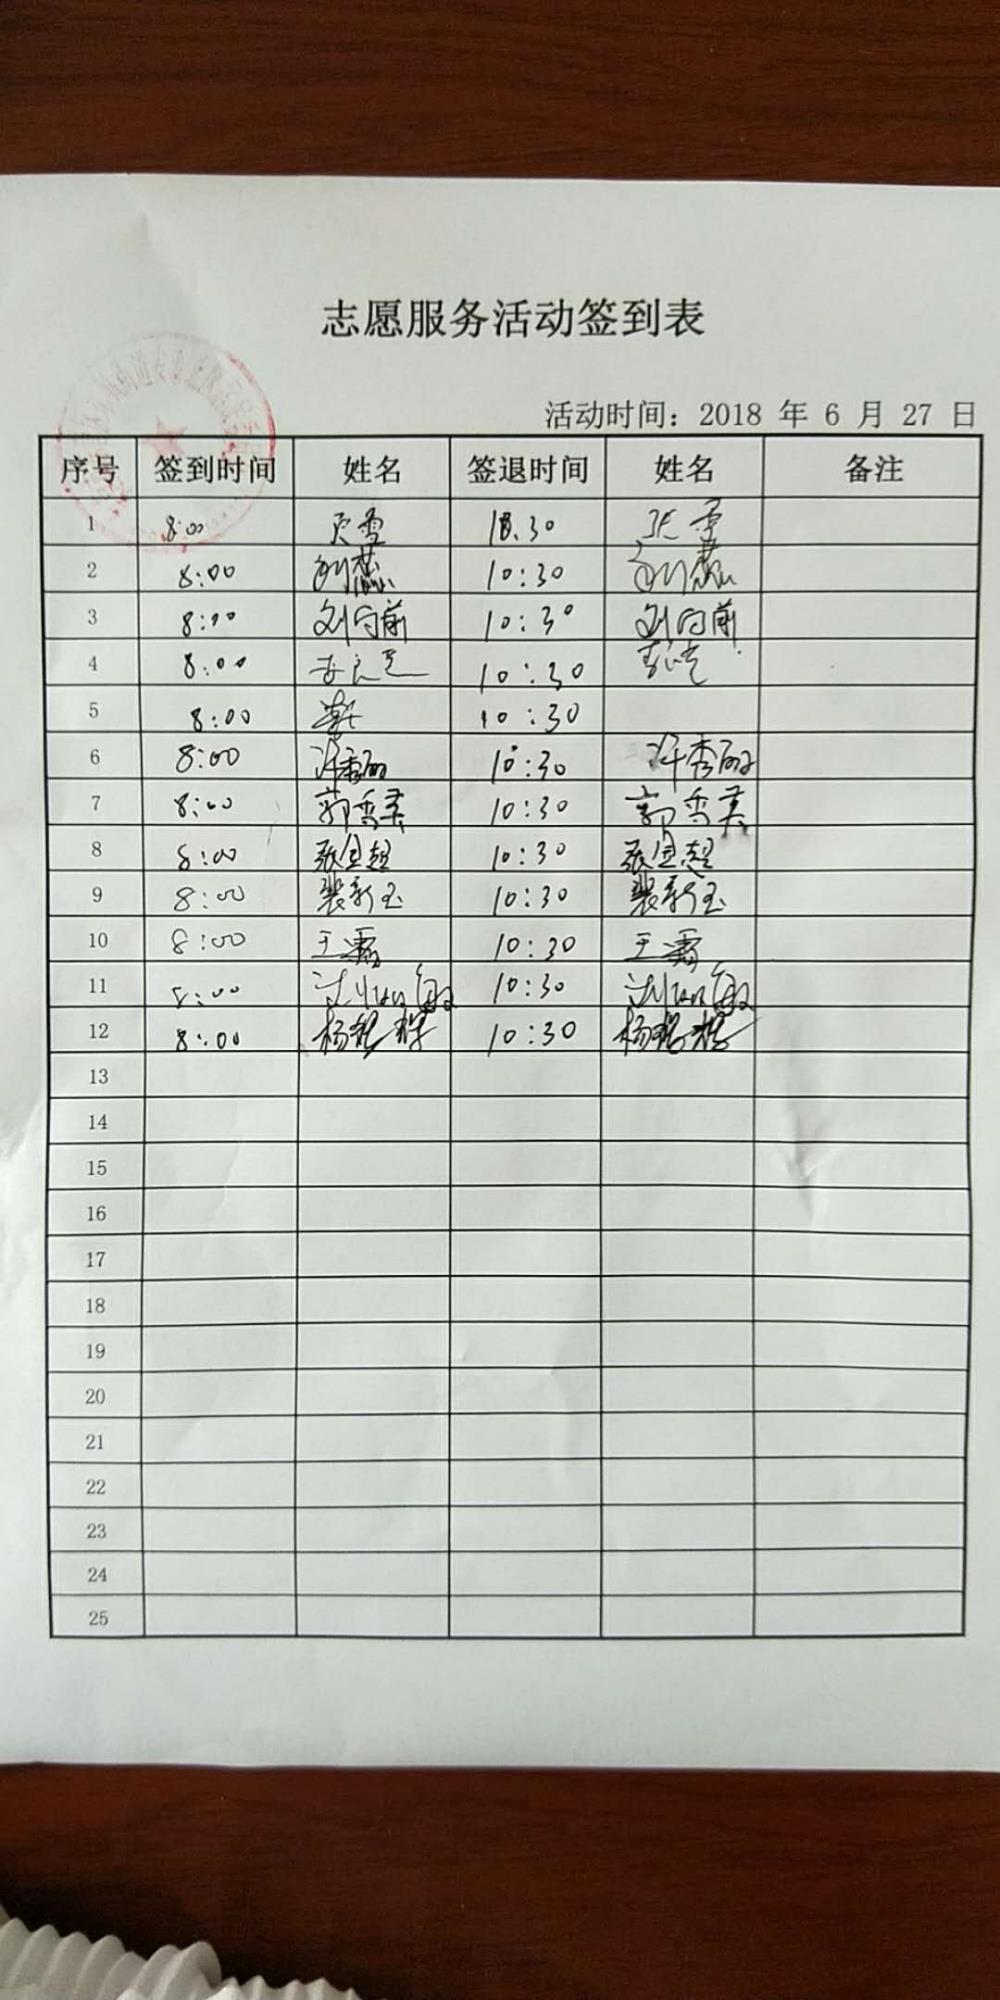 志愿服务活动签到表
活动时间：2018 年 6 月 27 日
序号 签到时间 姓名 签退时间 姓名 备注
1 8:00 10.30
2 8:00 10:30
3 8:00 刘向前 10:30 刘向前
4 8:00 10:30
5 8:00 10:30
6 8:00 许秀丽 10:30 许秀丽
7 8:00 郭秀英 10:30 郭秀英
8 8:00 10:30
9 8:00 裴新玉 10:30 裴新玉
10 8:00 王霞 10:30 王霞
11 8:00 10:30
12 8:00 10:30
13
14
15
16
17
18
19
20
21
22
23
24
25